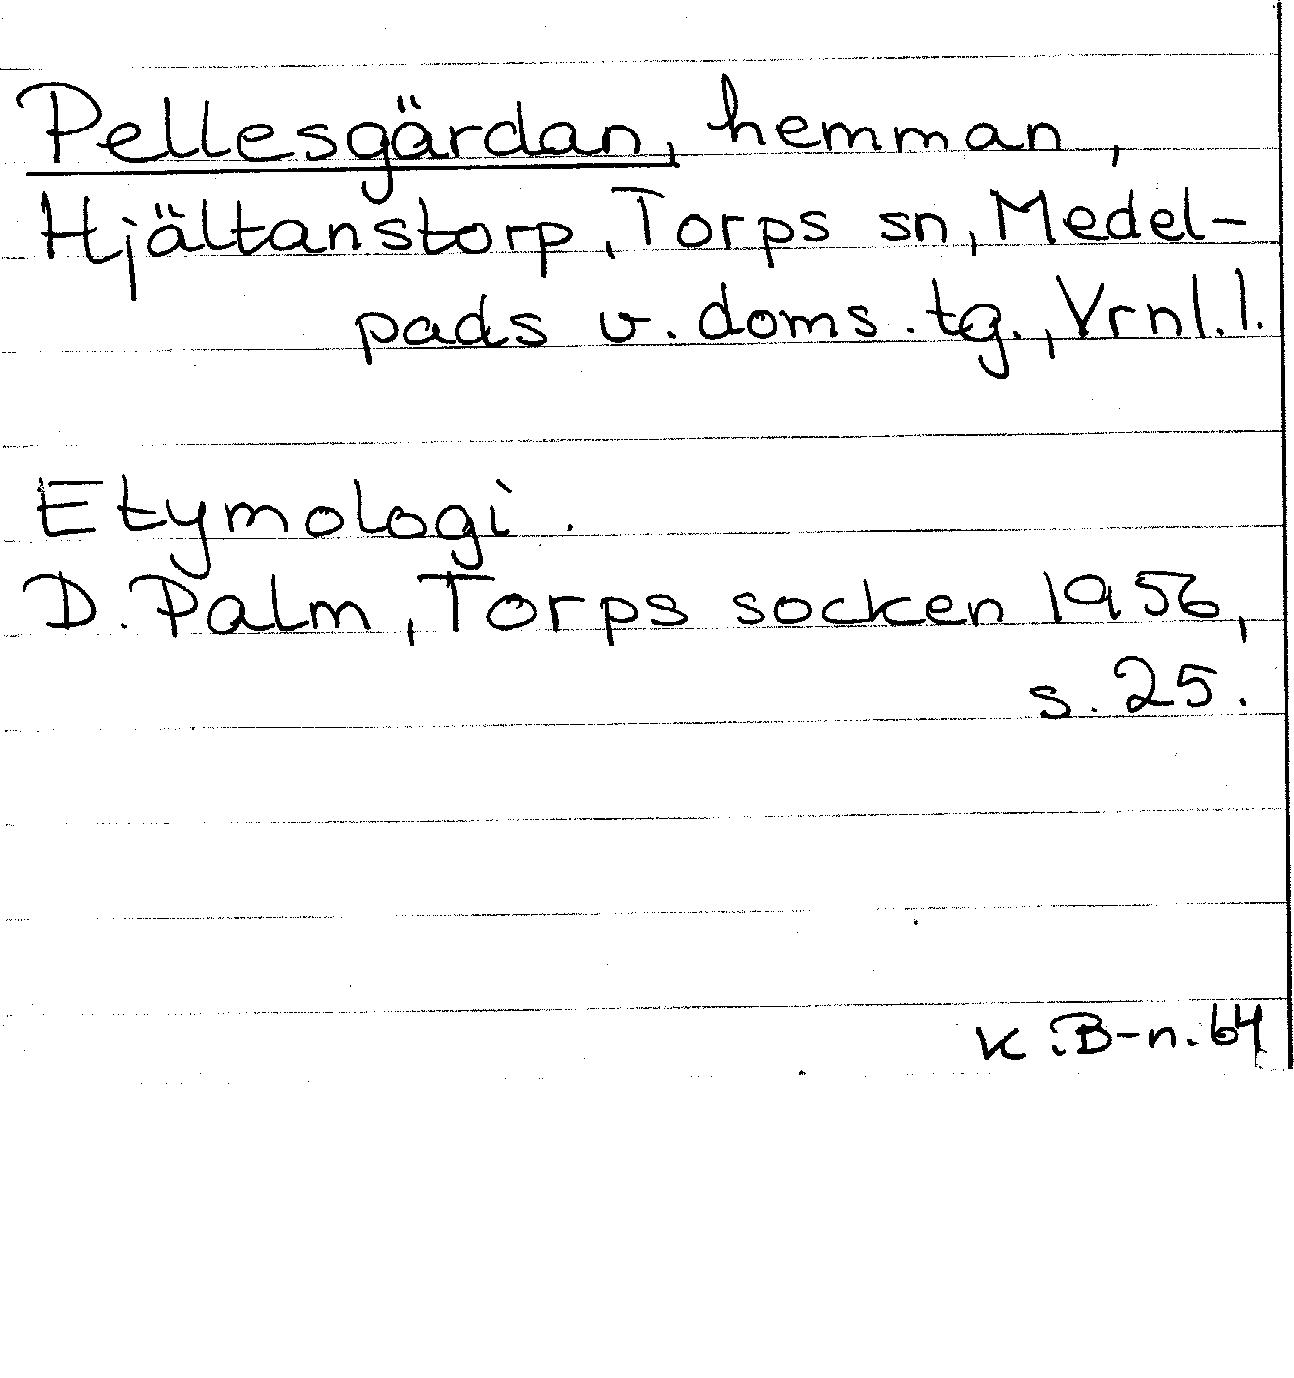 Pellesgärdan, hemman,
Hjältanstorp, Torps sn, Medel-
pads v. doms. tg., Vrnl. l.
Etymologi.
D. Palm, Torps socken 1956,
s. 25.
K. B-n. 64